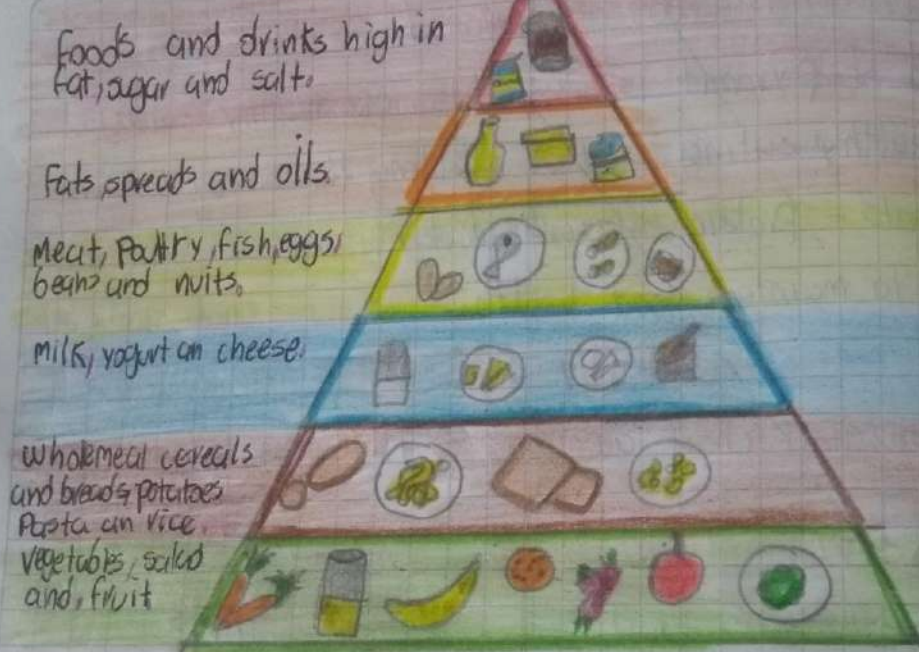 foods and drinks high in
fat, sugar and salt.
Fats, spreads and oils.
Meat, Paltry, fish, eggs,
beans and nuits.
Milk, yogurt an cheese.
Wholemeal cereals
and breads, potatoes
Pasta an rice.
Vegetables, salad
and, fruit